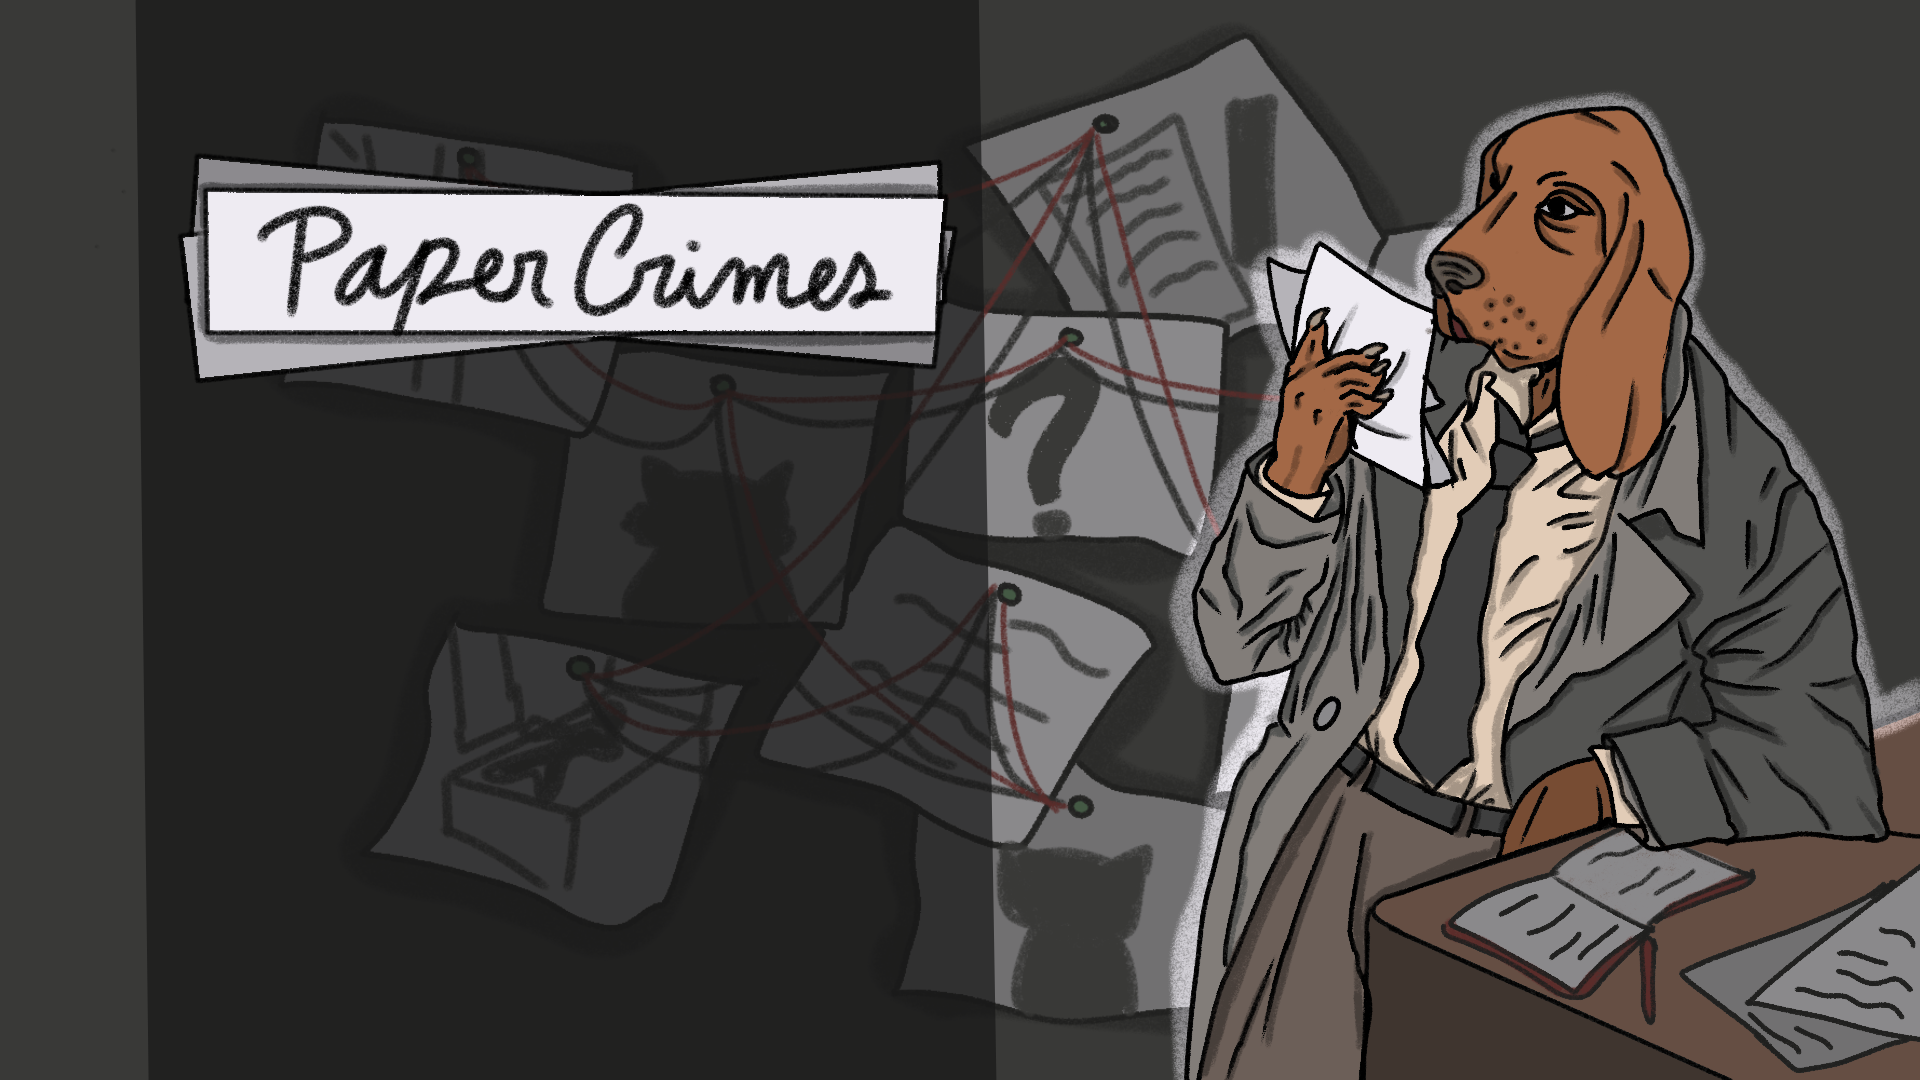 Paper Crimes
?